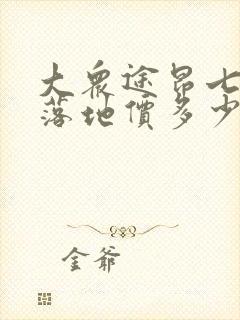 大衆途昂七
落地價多少
金爺